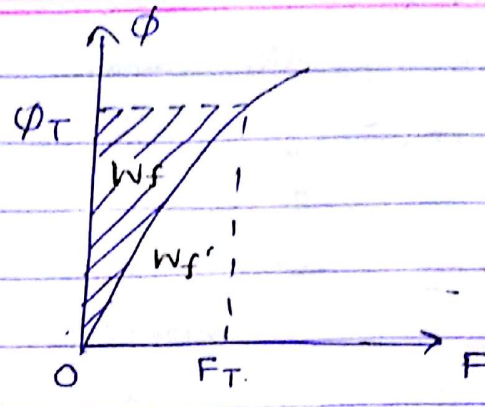 φ
φT
Wf
Wf'
O
FT.
F